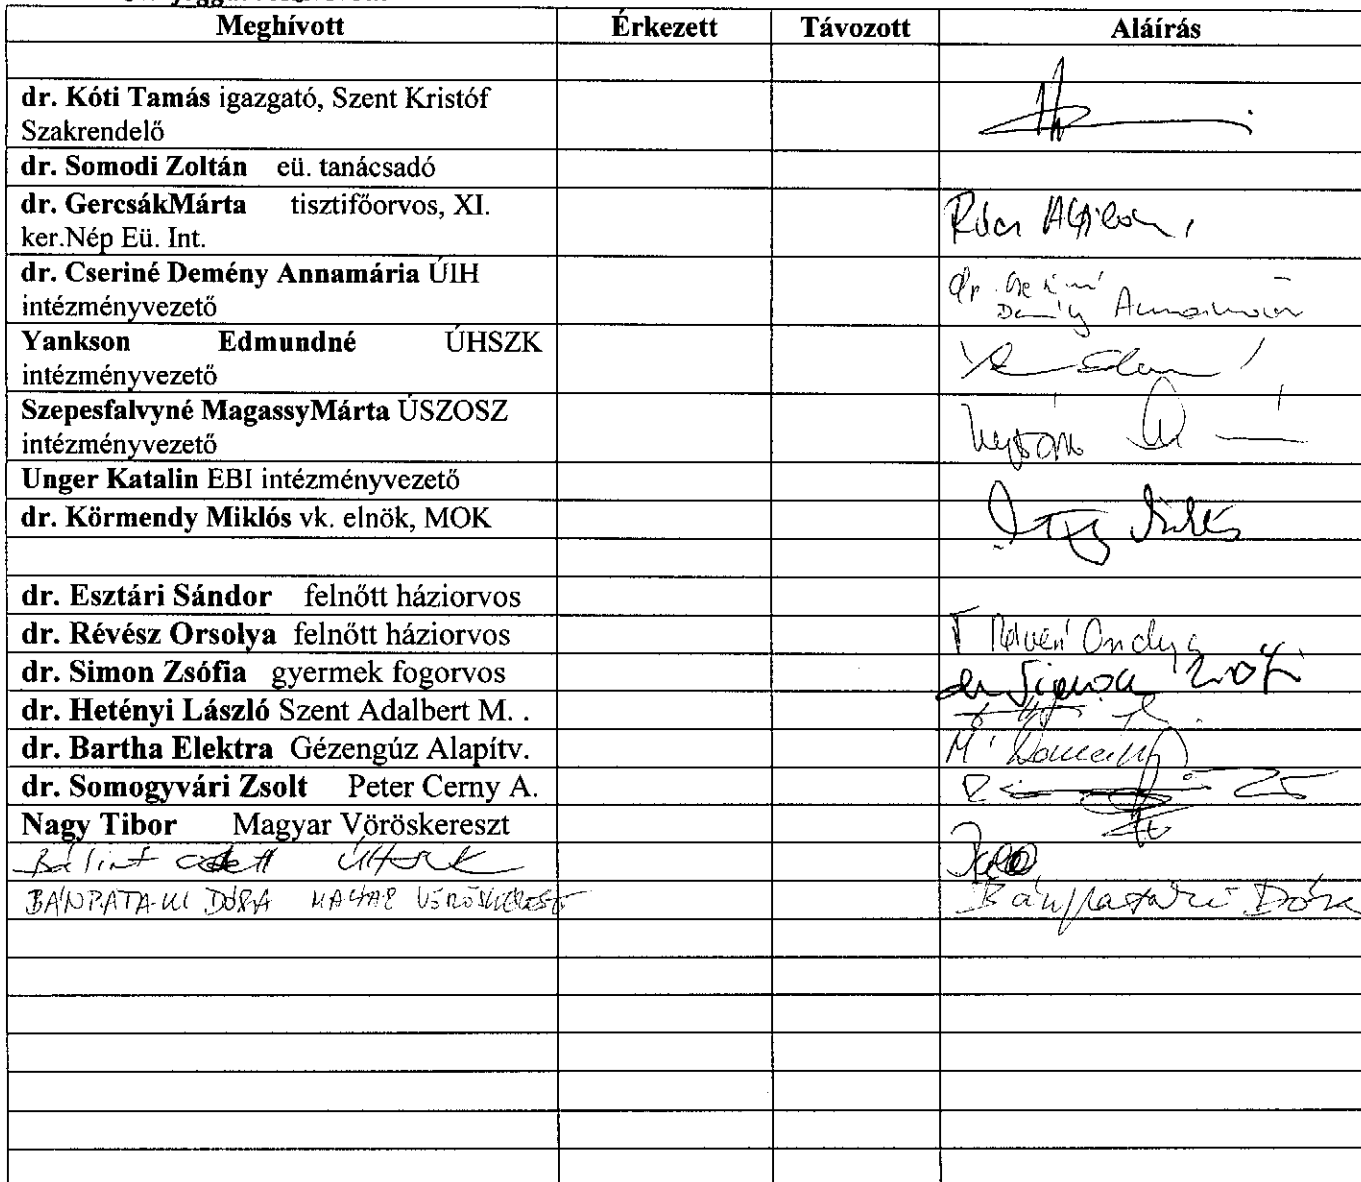 Meghívott Érkezett Távozott Aláírás
dr. Kóti Tamás igazgató, Szent Kristóf
Szakrendelő
dr. Somodi Zoltán eü. tanácsadó
dr. GercsákMárta tisztifőorvos, XI.
ker.Nép Eü. Int.
dr. Cseriné Demény Annamária ÚIH
intézményvezető
Yankson Edmundné ÚHSZK
intézményvezető
Szepesfalvyné MagassyMárta ÚSZOSZ
intézményvezető
Unger Katalin EBI intézményvezető
dr. Körmendy Miklós vk. elnök, MOK
dr. Esztári Sándor felnőtt háziorvos
dr. Révész Orsolya felnőtt háziorvos
dr. Simon Zsófia gyermek fogorvos
dr. Hetényi László Szent Adalbert M. .
dr. Bartha Elektra Gézengúz Alapítv.
dr. Somogyvári Zsolt Peter Cerny A.
Nagy Tibor Magyar Vöröskereszt
Bálint
BÁNPATAKI DÓRA MAGYAR VÖRÖSKERESZT Bánpataki Dóra